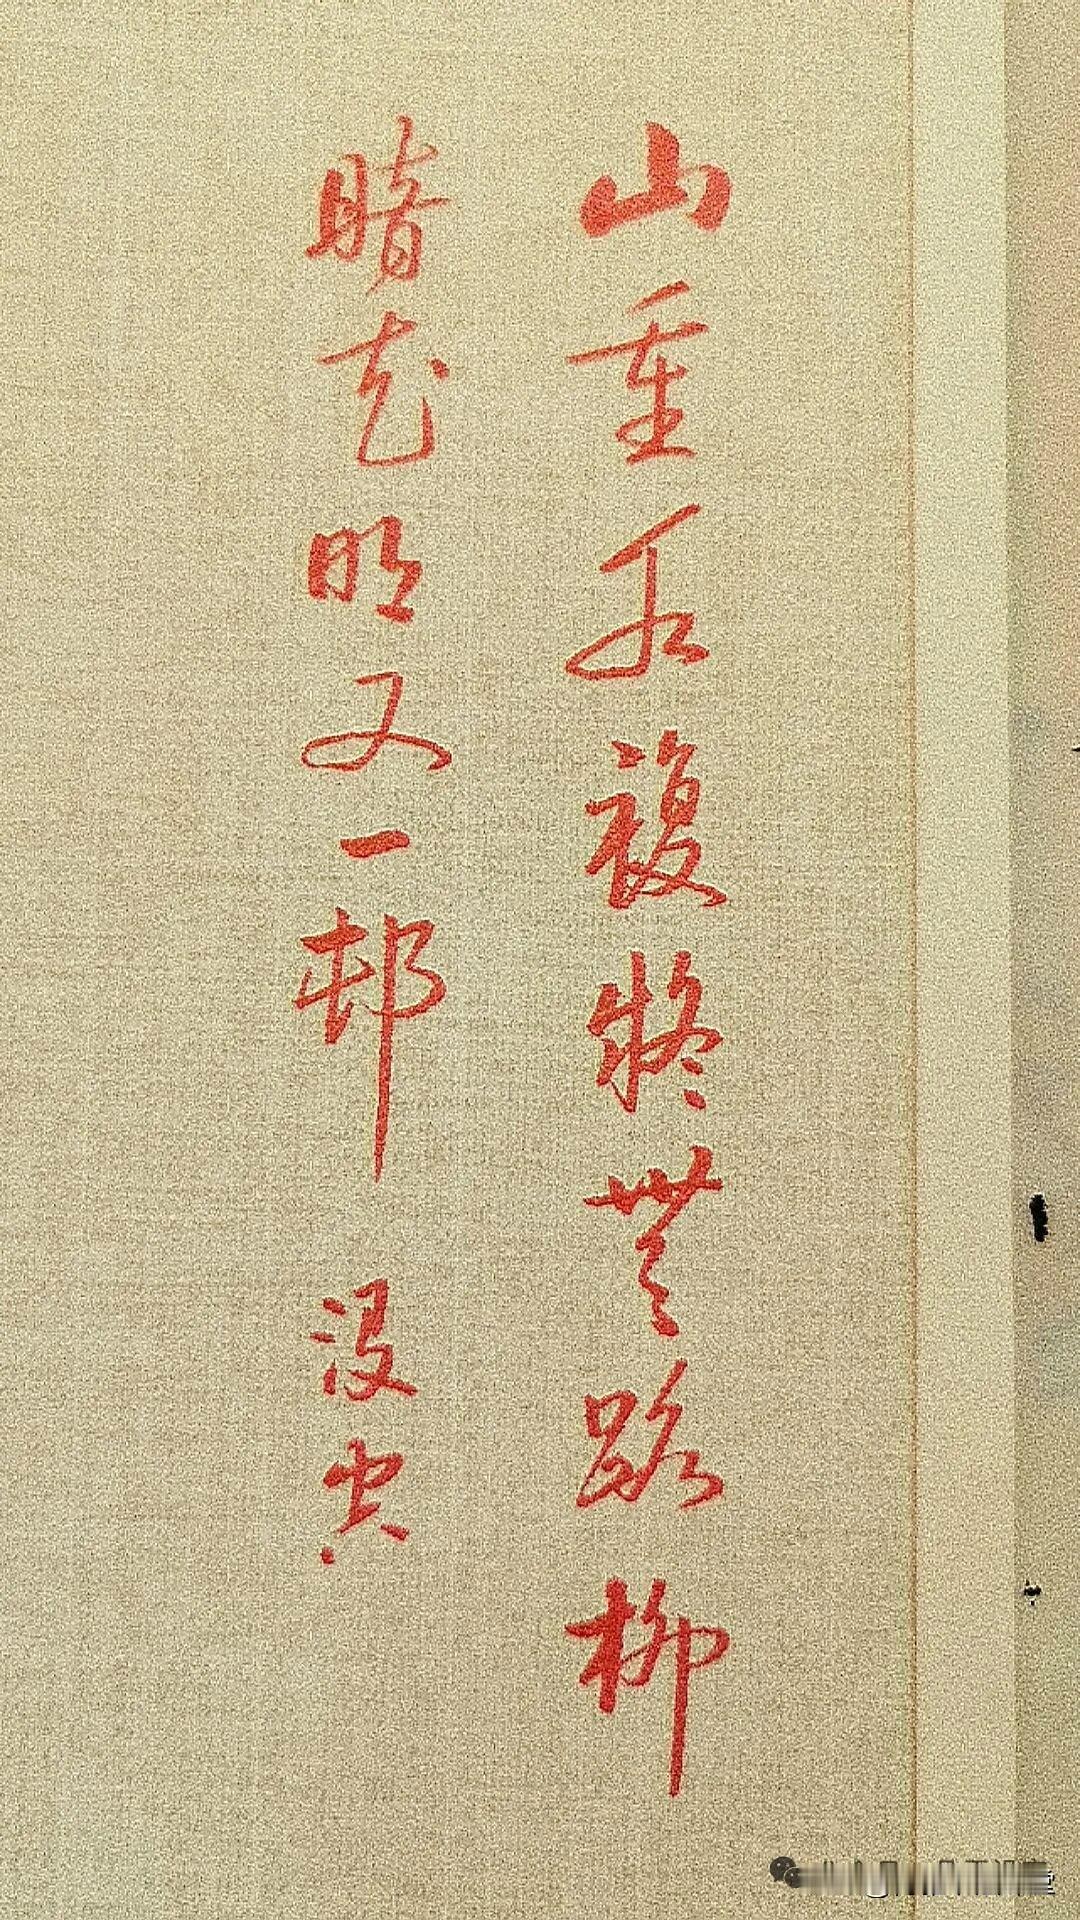 山重水複疑無路柳
暗花明又一邨